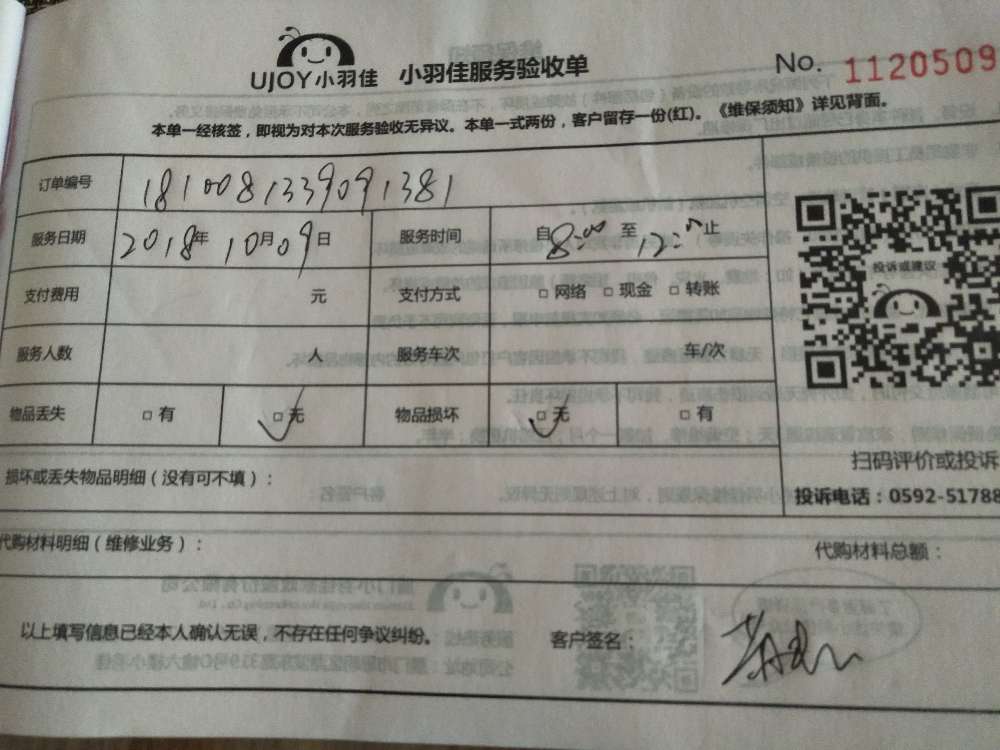 UJOY小羽佳 小羽佳服务验收单 No. 1120509
本单一经核签，即视为对本次服务验收无异议。本单一式两份，客户留存一份(红)。《维保须知》详见背面。
订单编号 1810081339091381
服务日期 2018年 10月09日 服务时间 自8:00至12:00止
支付费用 元 支付方式 □ 网络 □ 现金 □ 转账
服务人数 人 服务车次 车/次
物品丢失 □ 有 □ 无 物品损坏 □ 无 □ 有
投诉或建议
扫码评价或投诉
损坏或丢失物品明细（没有可不填）：
投诉电话：0592-51788
代购材料明细（维修业务）： 代购材料总额：
以上填写信息已经本人确认无误，不存在任何争议纠纷。 客户签名：